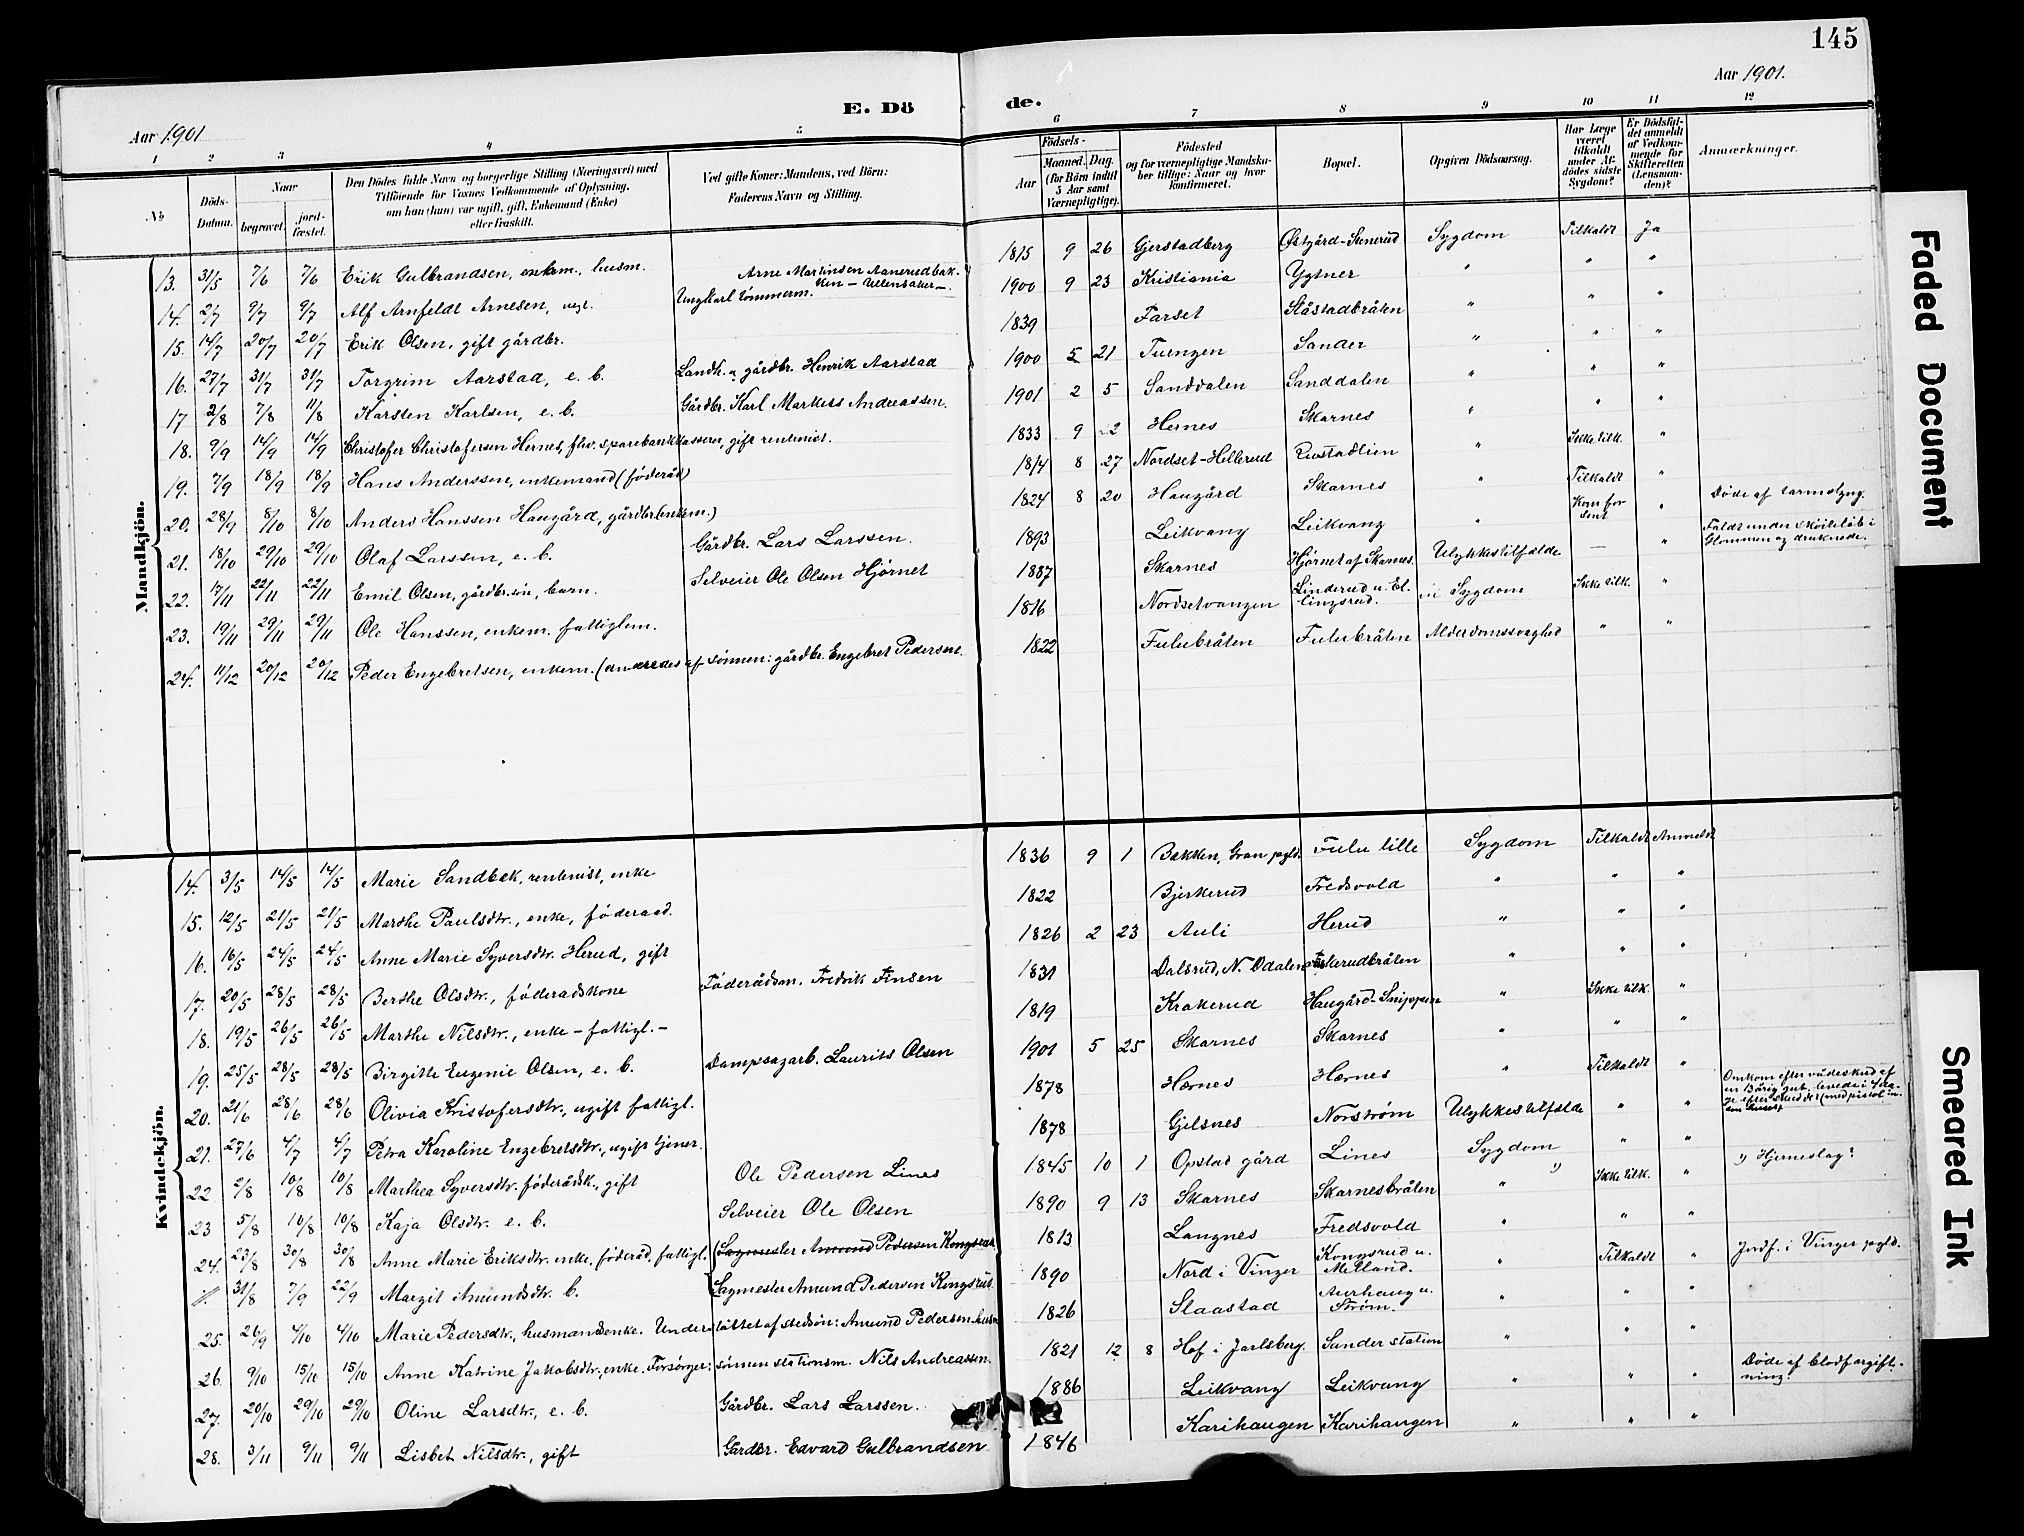 145
Aar 1901
E. Dö
de.
Aar 1901.
1 2 3 4 5 6 7 8 9 10 11 12
No
Döds-
Datum.
Naar
begravet.
jord-
fæstet.
Den Dödes fulde Navn og borgerlige Stilling (Næringsvei) med
Tilföiende for Voxnes Vedkommende af Oplysning,
om han (hun) var ugift, gift, Enkemand (Enke)
eller fraskilt.
Ved gifte Koner: Mandens, ved Börn:
Faderens Navn og Stilling.
Födsels-
Aar
Maaned. Dag.
(for Börn indtil
5 Aar samt
Værnepligtige).
Födested
og for værnepligtige Mandska-
ber tillige: Naar og hvor
konfirmeret.
Bopæl.
Opgiven Dödsaarsag.
Har Læge
været
tilkaldt
under Af-
dödes sidste
Sygdom?
Er Dödsfal-
det anmeldt
af Vedkom-
mende for
Skifteretten
(Lensman-
den)?
Anmærkninger.
Mandkjön.
13. 31/5 7/6 7/6 Erik Gulbrandsen, enkem., husm. 1815 9 26 Gjerstadberg Østgård-Skinerud Sygdom Tilkaldt Ja
Arne Martinsen Aanerudbak-
ken - Ullensaker -
14. 2/7 9/7 9/7 Alf Arnfeldt Arnesen, uegt. Ungkarl tømmerm. 1900 9 23 Kristiania Ygtner " " "
15. 14/7 20/7 20/7 Erik Olsen, gift gårdbr. 1839 Farset Slåstadbråten " " "
16. 27/7 31/7 31/7 Torgrim Aarstad, e. b. Landh. og gårdbr. Henrik Aarstad 1900 5 21 Tuengen Sander " " "
17 2/8 7/8 11/8 Karsten Karlsen, e. b. Gårdbr. Karl Markus Andreassen. 1901 2 5 Sanddalen Sanddalen " " "
18. 9/9 14/9 14/9 Christofer Christofersen Hernes, fhv. sparebankkasserer, gift rentenist. 1833 9 22 Hernes Skarnes " " "
19. 7/9 18/9 18/9 Hans Anderssen, enkemand (føderåd) 1814 8 27 Nordset-Hellerud Rustadlien " Ikke tilk. "
20. 28/9 8/10 8/10 Anders Hanssen Haugård, gårdbr. (enkem.) 1824 8 20 Haugård Skarnes " Tilkaldt "
21. 18/10 29/10 29/10 Olaf Larssen, e. b. Gårdbr. Lars Larssen. 1893 Leikvang Leikvang " Kom for sent " Døde af tarmslyng.
22. 17/11 22/11 22/11 Emil Olsen, gårdbr.søn, barn. Selveier Ole Olsen Hjørnet 1887 Skarnes Hjørnet af Skarnes. Ulykkestilfælde — " Faldt under skøiteløb i
Glommen og druknede.
23. 19/11 29/11 29/11 Ole Hanssen, enkem. fattiglem. 1816 Nordsetvangen Linderud u. El-
lingsrud. Sygdom Ikke tilk. "
24. 11/12 20/12 20/12 Peder Engebretsen, enkem. af sønnen: gårdbr. Engebret Pedersen. 1822 Fulubråten Fulubråten Alderdomssvaghed " "
Kvindekjön.
14. 3/5 14/5 14/5 Marie Sandbek, rentenist, enke 1836 9 1 Bakken, Gran pgld. Fulu lille Sygdom Tilkaldt Anmeldt
15. 12/5 21/5 21/5 Marthe Paulsdtr., enke, føderaad. 1822 Bjerkerud Fredsvold " " "
16. 16/5 24/5 24/5 Anne Marie Syversdtr. Herud, gift 1826 2 23 Auli Herud " " "
17. 20/5 28/5 28/5 Berthe Olsdtr., føderaadskone Føderådsm. Fredrik Finsen 1831 Dalsrud, N. Odalen " " "
18. 19/5 26/5 26/5 Marthe Nilsdtr., enke - fattigl. - 1819 Krakerud Haugård-Snippen " Ikke tilk. "
19. 25/5 28/5 28/5 Birgitte Eugenie Olsen, e. b. Dampsagarb. Laurits Olsen 1901 5 25 Skarnes Skarnes " " "
20. 21/6 28/6 28/6 Olivia Kristofersdtr., ugift fattigl. 1878 Hærnes Hærnes " Tilkaldt "
21. 27/6 4/7 4/7 Petra Karoline Engebretsdtr., ugift tjener. 1878 Gjelsnes Norstrøm Ulykkestilfælde " " Omkom efter vådeskud af
en 13 årig gut, levede i 4 da-
ge efter skuddet (med pistol
22 2/8 10/8 10/8 Marthea Syversdtr. føderådsk., gift Ole Pedersen Lines 1845 10 1 Opstad gård Lines Sygdom ") " " ") Hjerneslag?
23 5/8 10/8 10/8 Kaja Olsdtr. e. b. Selveier Ole Olsen 1890 9 13 Skarnes Skarnesbråten " Ikke tilk. "
24. 23/8 30/8 30/8 Anne Marie Eriksdtr. enke, føderåd. fattigl. Sagmester Amund Pedersen Kongsrud. 1813 Langnes Fredsvold " " "
31/8 7/9 22/9 Margit Amundsdtr. b. Sagmester Amund Pedersen Kongsrud. 1890 Nord i Vinger Kongsrud u.
Melland. " Tilkaldt " Jordf. i Vinger pgld.
25. 26/9 4/10 4/10 Marie Pedersdtr., husmandsenke. Understøttet af stedsøn: Amund Pedersen husm. 1826 Slaastad Aurhaug u.
Strøm. " " "
26. 9/10 15/10 15/10 Anne Katrine Jakobsdtr., enke. Forsørger: sønnen stationsm. Nils Andreassen. 1821 12 8 Hof i Jarlsberg. Sander station " " "
27. 20/10 29/10 29/10 Oline Larsdtr., e. b. Gårdbr. Lars Larssen. 1886 Leikvang Leikvang " " " Døde af blodforgift-
ning.
28. 3/11 9/11 9/11 Lisbet Nilsdtr., gift Gårdbr. Edvard Gulbrandsen 1846 Karihaugen Karihaugen " " "
Faded Document
Smeared Ink